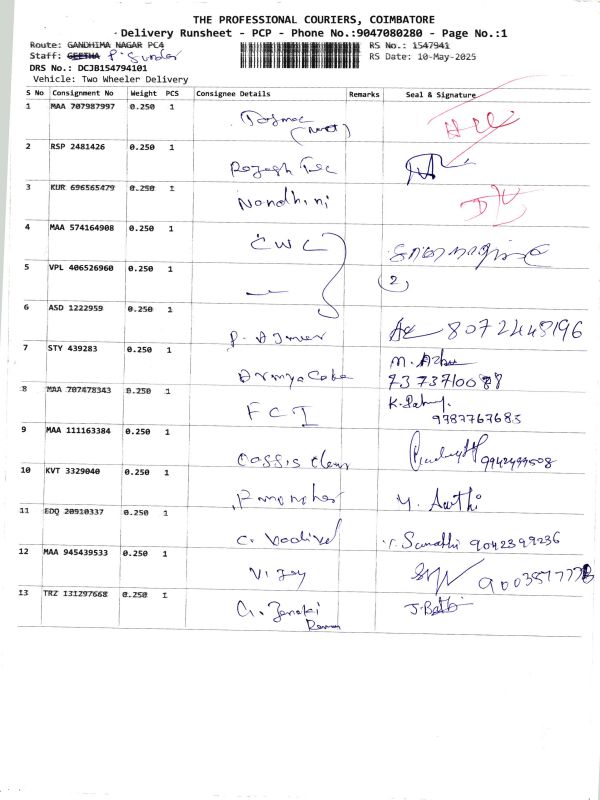 THE PROFESSIONAL COURIERS, COIMBATORE
Delivery Runsheet - PCP - Phone No.:9047080280 - Page No.:1
Route: GANDHIMA NAGAR PC4 RS No.: 1547941
Staff: GEETHA P. Sunder RS Date: 10-May-2025
DRS No.: DCJB154794101
Vehicle: Two Wheeler Delivery
S No Consignment No Weight PCS Consignee Details Remarks Seal & Signature
1 MAA 707987997 0.250 1
2 RSP 2481426 0.250 1
3 KUR 696565479 0.250 1 Nandhini
4 MAA 574164908 0.250 1 CWC
5 VPL 406526960 0.250 1 2
6 ASD 1222959 0.250 1 8072448196
7 STY 439283 0.250 1 M. Azhu
7373710087
8 MAA 707478343 0.250 1 FCI
9787767685
9 MAA 111163384 0.250 1 9942499508
10 KVT 3329040 0.250 1 P Manohar Y. Aarthi
11 EDQ 20910337 0.250 1 C. Vadivel Sumathi 9042399236
12 MAA 945439533 0.250 1 Vijay
13 TRZ 131297668 0.250 1 G. Janaki
Raman